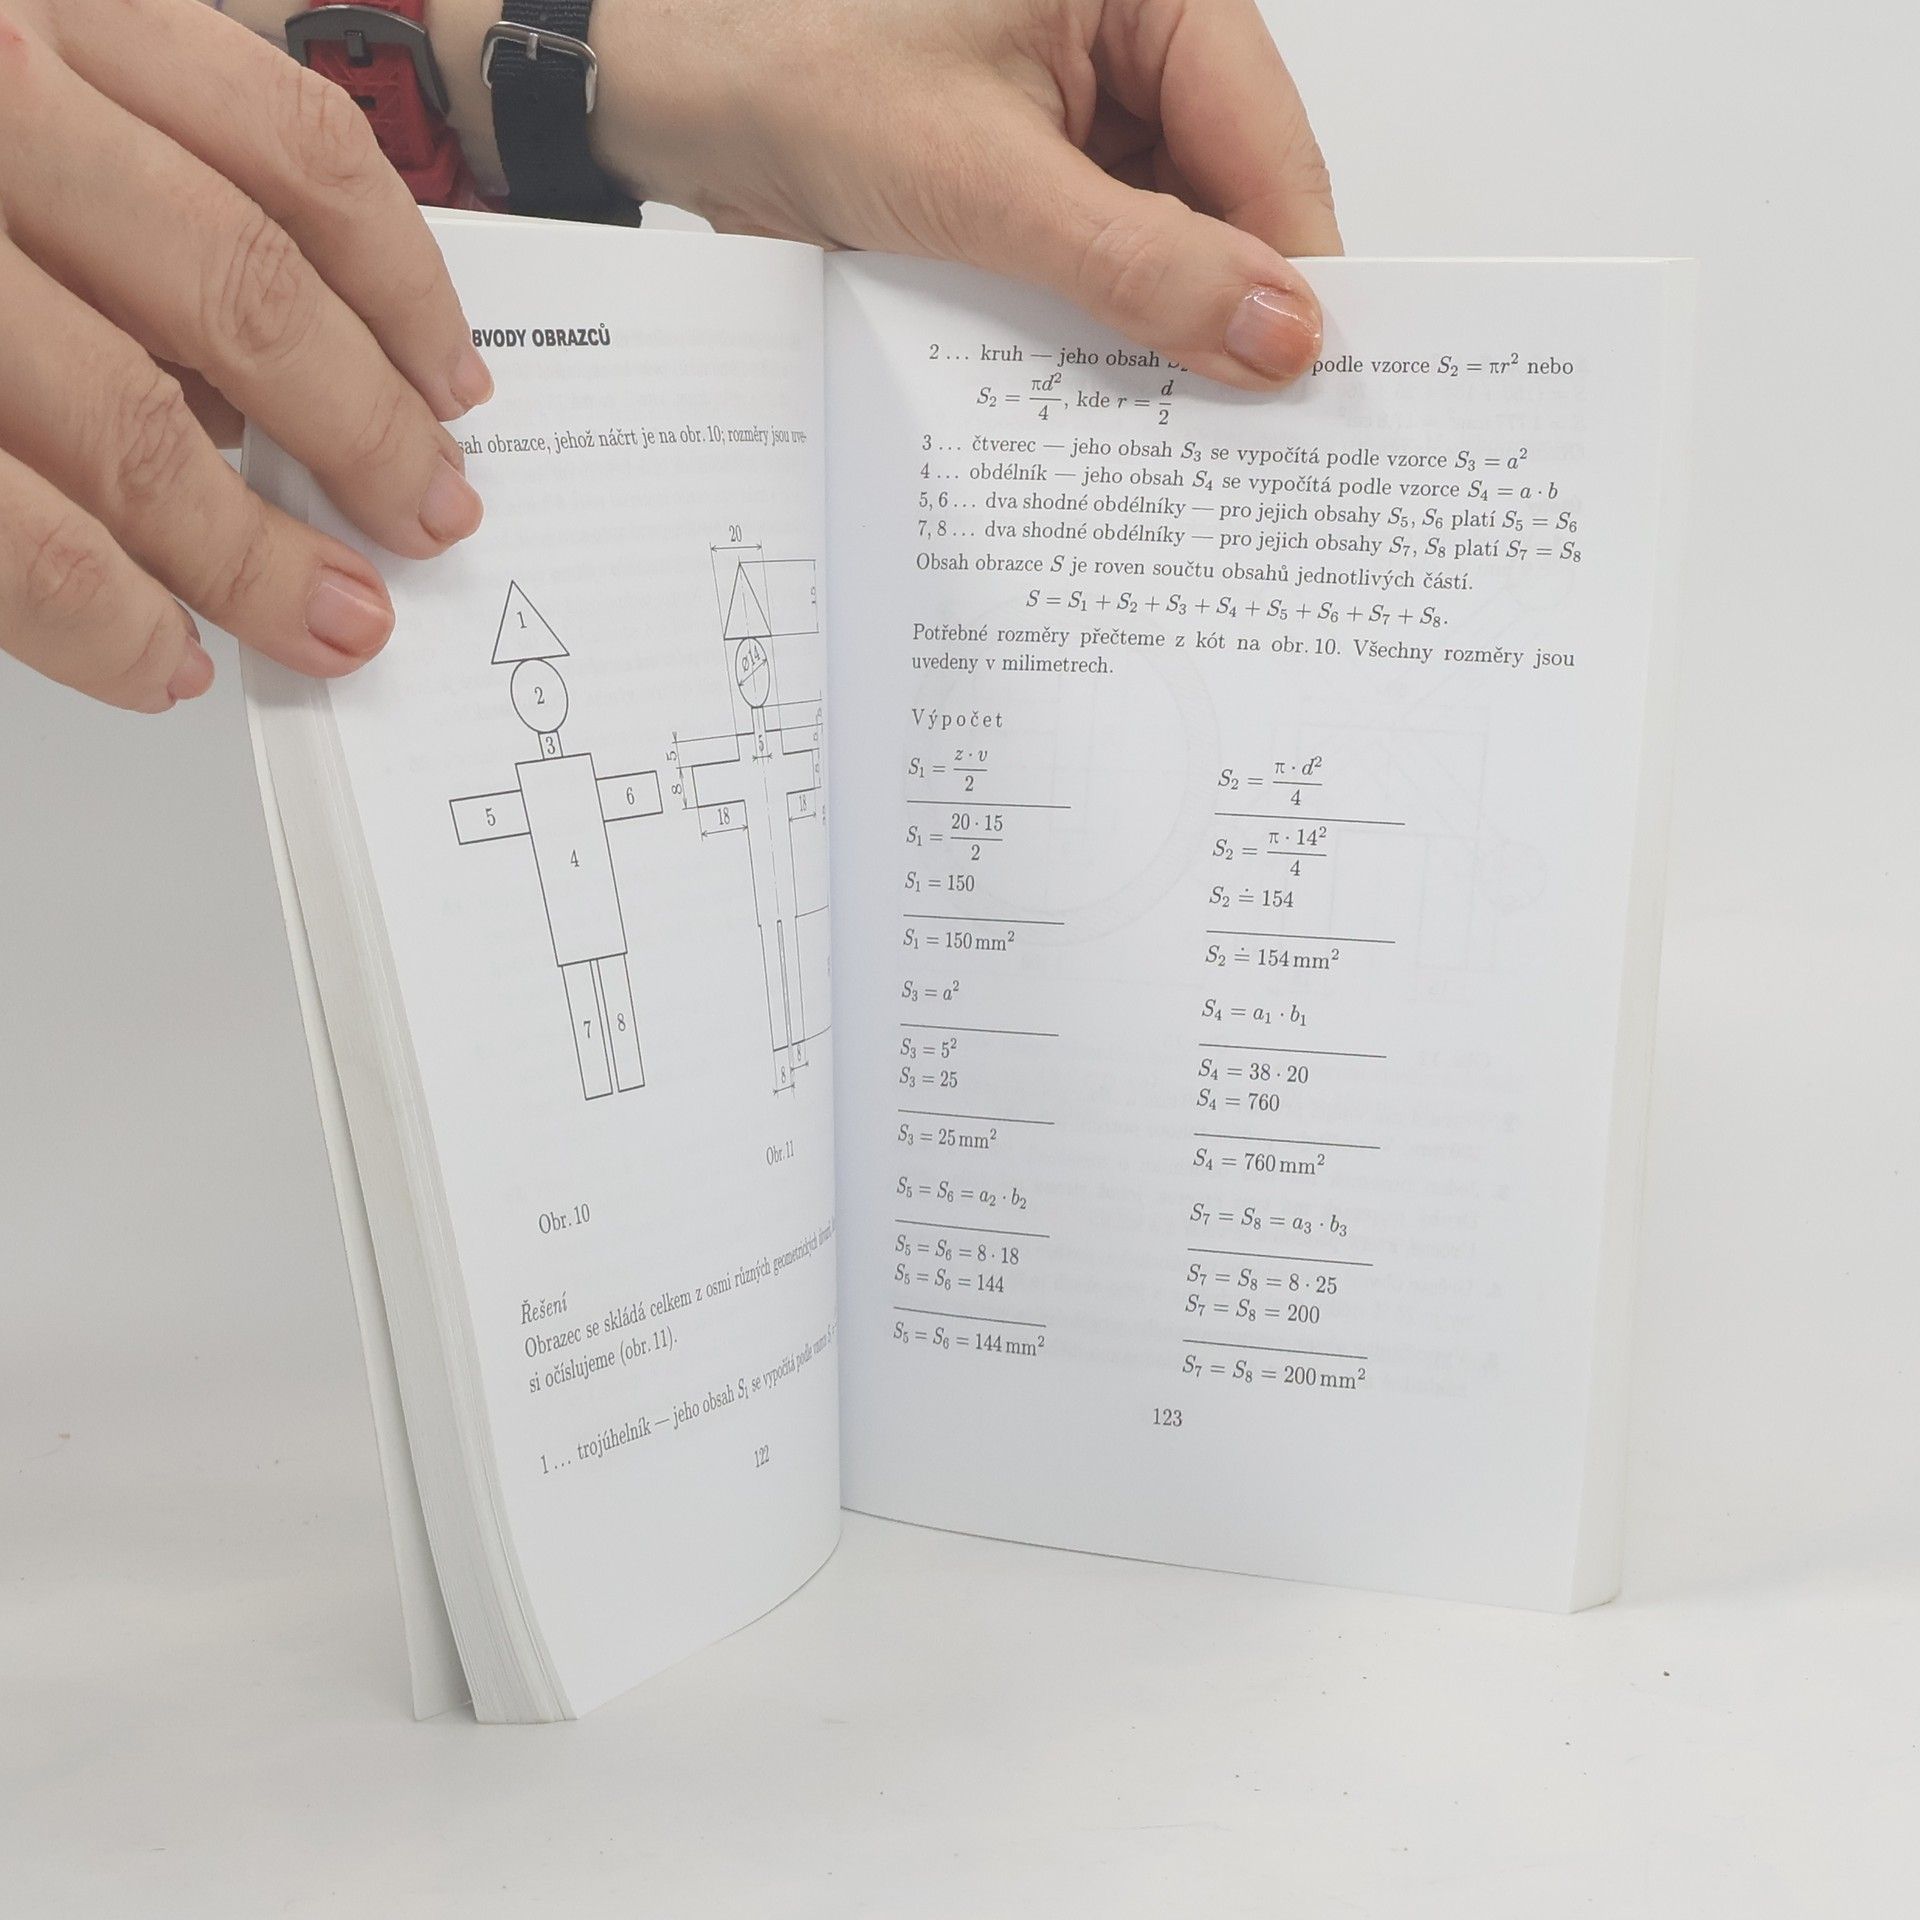 BVODY OBRAZCŮ
obrazce, jehož náčrt je na obr. 10; rozměry jsou
20
1
2
3
4
5
6
7
8
ø14
5
5
8
18
18
8
8
Obr. 11
Obr. 10
Řešení
Obrazec se skládá celkem z osmi různých geometrických
si očíslujeme (obr. 11).
1 ... trojúhelník — jeho obsah S₁ se vypočítá podle vzorce
122
2 ... kruh — jeho obsah podle vzorce S₂ = πr² nebo
S₂ = πd²/4, kde r = d/2
3 ... čtverec — jeho obsah S₃ se vypočítá podle vzorce S₃ = a²
4 ... obdélník — jeho obsah S₄ se vypočítá podle vzorce S₄ = a · b
5, 6 ... dva shodné obdélníky — pro jejich obsahy S₅, S₆ platí S₅ = S₆
7, 8 ... dva shodné obdélníky — pro jejich obsahy S₇, S₈ platí S₇ = S₈
Obsah obrazce S je roven součtu obsahů jednotlivých částí.
S = S₁ + S₂ + S₃ + S₄ + S₅ + S₆ + S₇ + S₈.
Potřebné rozměry přečteme z kót na obr. 10. Všechny rozměry jsou
uvedeny v milimetrech.
Výpočet
S₁ = z · v/2
S₁ = 20 · 15/2
S₁ = 150
S₁ = 150 mm²
S₂ = π · d²/4
S₂ = π · 14²/4
S₂ ≐ 154
S₂ ≐ 154 mm²
S₃ = a²
S₃ = 5²
S₃ = 25
S₃ = 25 mm²
S₄ = a₁ · b₁
S₄ = 38 · 20
S₄ = 760
S₄ = 760 mm²
S₅ = S₆ = a₂ · b₂
S₅ = S₆ = 8 · 18
S₅ = S₆ = 144
S₅ = S₆ = 144 mm²
S₇ = S₈ = a₃ · b₃
S₇ = S₈ = 8 · 25
S₇ = S₈ = 200
S₇ = S₈ = 200 mm²
123